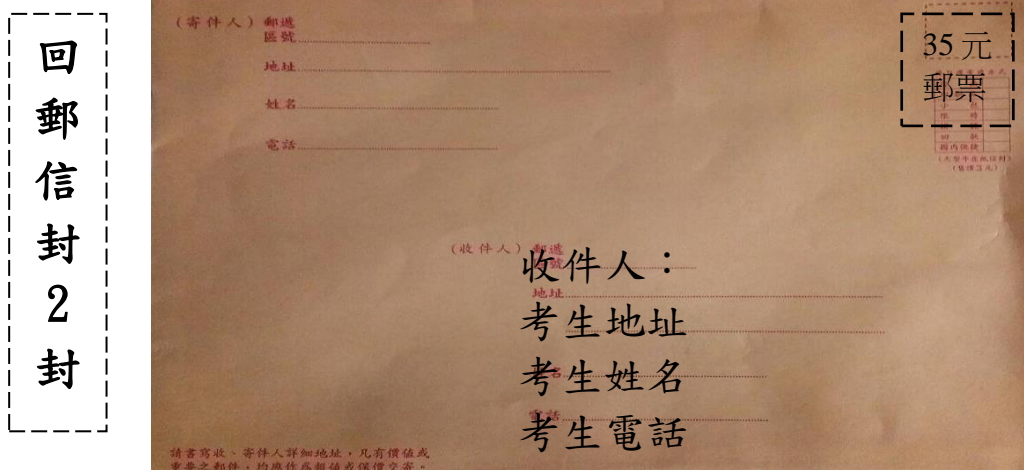 回郵信封2封
(寄件人)郵遞
區號
地址
姓名
電話
35元
郵票
國內快捷
(大型牛皮紙信封)
(售價3元)
(收件人)郵遞
區號
收件人：
地址
考生地址
考生姓名
電話
考生電話
請書寫收、寄件人詳細地址，凡有價值或
重要之郵件，均應作為報值或保價交寄。